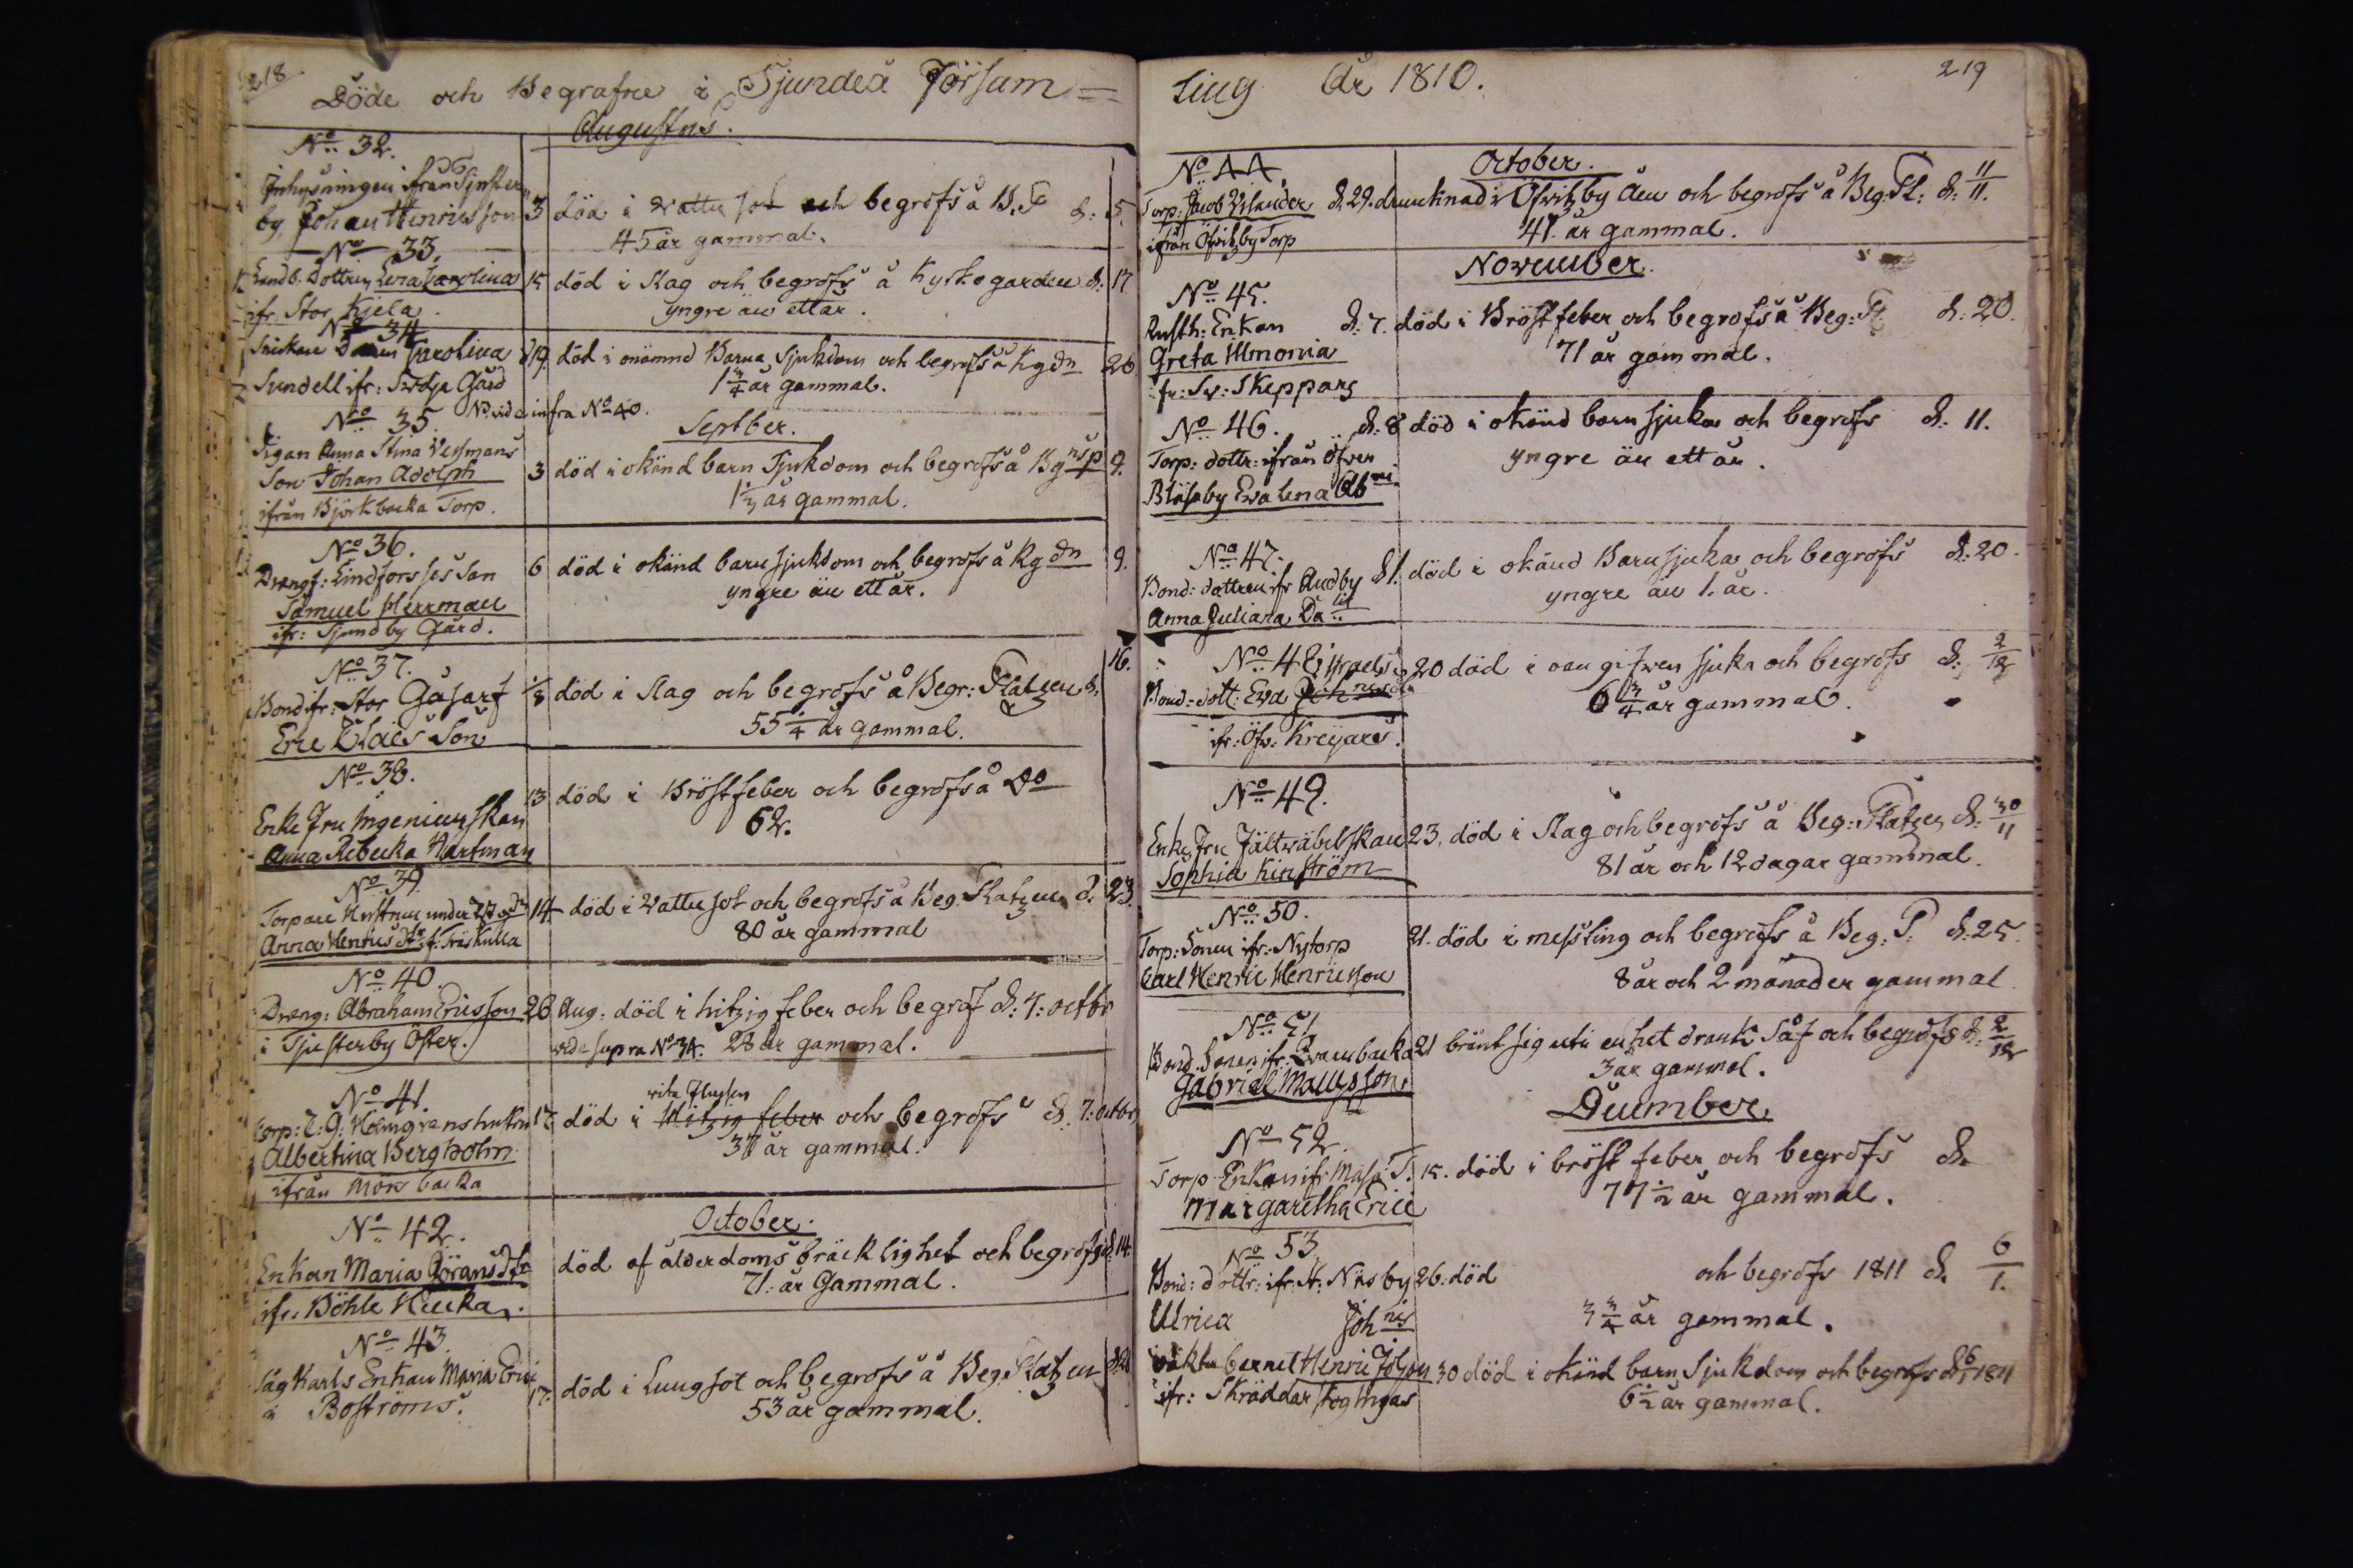 218
Döde och Begrafne i Sjundeå Församling År 1810.
219
Augustus.
No 32.
Inhysningen ifrån Tjuster
by Johan Henricsson 3 död i Wattusot och begrofs å B. P. d. 5.
45 år gammal.
No 33.
Landb. Dottren Lovisa Carolina 15 död i Slag och begrofs å Kyrkogården d. 17
ifr Stor Kjela. yngre än ett år.
No 34
Carolina d 19. död i onämnd Barna sjukdom och begrofs å Kg dn 26
Sundell ifr: Svidja Gård 1 3/4 år gammal.
vide infra No 40.
No 35.
Septber.
Pigan Anna Stina
Son Johan Adolph 3 död i okänd barn Sjukdom och begrofs å 9.
ifrån Björkbacka Torp. 1 1/2 år gammal.
No 36.
Drengs: Lindforsses Son 6 död i okänd barnsjukdom och begrofs å Kg dn 9.
Samuel Herrman yngre än ett år.
ifr: Sjundby Gård.
No 37.
Bond ifr: Stor Gåsarf 8 död i Slag och begrofs å Begr: Platzen d. 16.
Eric Claës Son 55 1/4 år gammal.
No 38.
Enke Fru Ingenieurskan 13 död i Bröstfeber och begrofs å Do
Anna Rebecka Hartman 62.
No 39.
Torpare Hustrun under 14 död i Wattusot och begrofs å Beg. Platzen d. 23.
Anna Henrics dtr. 80 år gammal
No 40.
Dreng: Abraham Ericsson 26 Aug: död i hitzig feber och begrof d: 7: octbr
i Tjusterby Öfter. vide supra No 34. 28 år gammal.
No 41.
Torp: Holmgrens hustru 17 död i Hitzig feber och begrofs d. 7: octbr
Albertina Bergholm 37 år gammal.
ifrån Mörsbacka
No 42.
October.
Enkan Maria Görans dtr död af ålderdoms bräcklighet och begrofs d. 14.
ifr. Böhle 71. år Gammal.
No 43.
Såg Karls Enkan Maria 17. död i Lungsot och begrofs å Beg. Platzen
å Boströms. 53 år gammal.
No 44
October.
Torp: Jacob d. 29. drunknad i Öfvitzby åen och begrofs å Beg: Pl: d: 11/11.
ifrån Öfvitzby Torp 47. år gammal.
November.
No 45.
Rusth: Enkan d: 7. död i Bröstfeber och begrofs å Beg: Pl: d: 20.
Greta 71 år gammal.
fr: Sv: Skeppars
No 46. d: 8 död i okänd barn sjuka och begrofs d: 11.
Torp: dottr: ifrån Öfver yngre än ett år.
Bläsaby Eva Lena
No 47.
Bond: dottren ifr Andby d 1. död i okänd Barnsjuka och begrofs d: 20.
Anna Juliana yngre än 1. år.
No 48. Israels
Bond: dott: Eva 20 död i oangifven sjuka och begrofs d: 2/12
ifr: Öfv: Kreijars. 6 3/4 år gammal.
No 49.
Enke Fru Fältwäbelskan 23. död i Slag och begrofs å Beg: Platzen d: 30/11
Sophia Kinström 81 år och 12 dagar gammal.
No 50.
Torp: Sonen ifr: Nytorp 21. död i messling och begrofs å Beg: P: d: 25.
Carl Henric Henricsson 8 år och 2 månader gammal
No 51
Bond. Sonen ifr: Qvarnbacka 21 bränt sig uti en het drank Så och begrofs d: 2/12
Gabriel Mattsson. 3 år gammal.
December.
No 52.
Torp Enkan ifr: 15. död i bröst feber och begrofs d.
Margaretha Erici 77 1/2 år gammal.
No 53.
Bond: dottr: ifr: St: Näsby 26. död och begrofs 1811 d. 6/1.
Ulrica Joh nis 3 3/4 år gammal.
Henric 30 död i okänd barn Sjukdom och begrofs d 6/1 1811
ifr: Skräddarskog 6 1/2 år gammal.